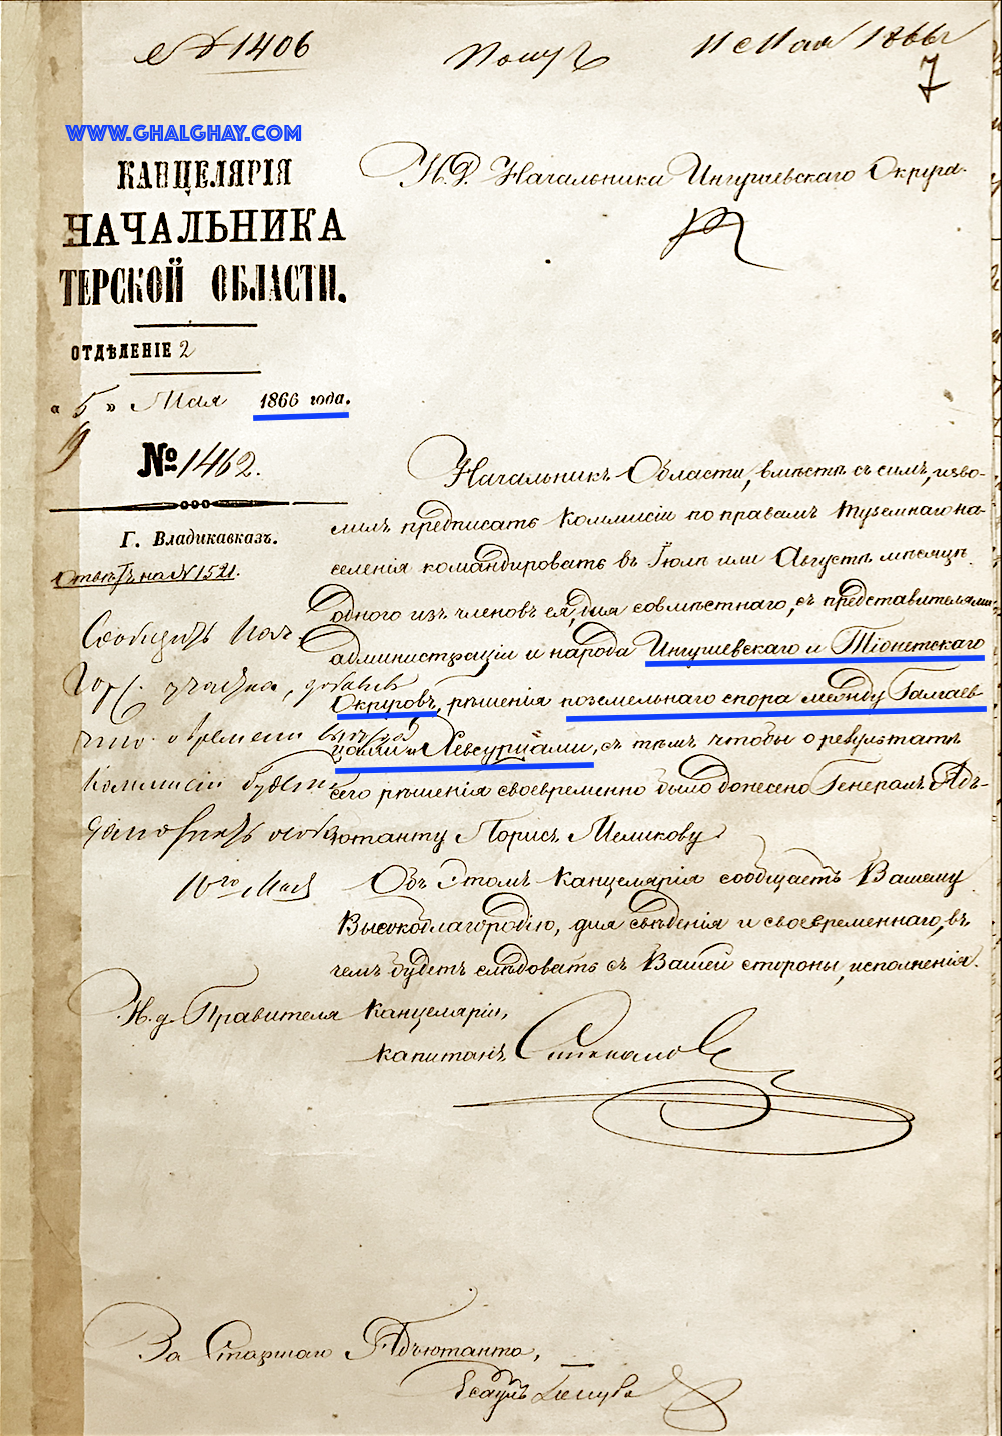 № 1406
Получ. 11 Мая 1866 г.
7
WWW.GHALGHAY.COM
КАНЦЕЛЯРІЯ
НАЧАЛЬНИКА
ТЕРСКОЙ ОБЛАСТИ.
ОТДѢЛЕНІЕ 2
« 5 » Мая 1866 года.
№ 1462.
Г. Владикавказъ.
Отвѣтъ на № 1521.
И.Д. Начальника Ингушевскаго Округа.
Начальникъ Области, вмѣстѣ съ симъ, изво-
лилъ предписать Коммисіи по правамъ туземнаго на-
селенія командировать въ Іюлѣ или Августѣ мѣсяцѣ
одного изъ членовъ ея, для совмѣстнаго, съ представителями
администраціи и народа Ингушевскаго и Тіонетскаго
Округовъ, рѣшенія поземельнаго спора между Галгаев-
цами и Хевсурцами, съ тѣмъ чтобы о результатѣ
сего рѣшенія своевременно было донесено Генералъ Адъ-
ютанту Лорисъ Меликову
Объ этомъ Канцелярія сообщаетъ Вашему
Высокоблагородію, для свѣденія и своевременнаго, въ
чемъ будетъ слѣдовать съ Вашей стороны, исполненія.
Сообщить Нач.
Гор. участка, добавивъ
что о времени
Коммисіи будетъ
10го Мая
И.д. Правителя Канцеляріи,
Капитанъ
За Старшаго Адъютанта,
Есаулъ